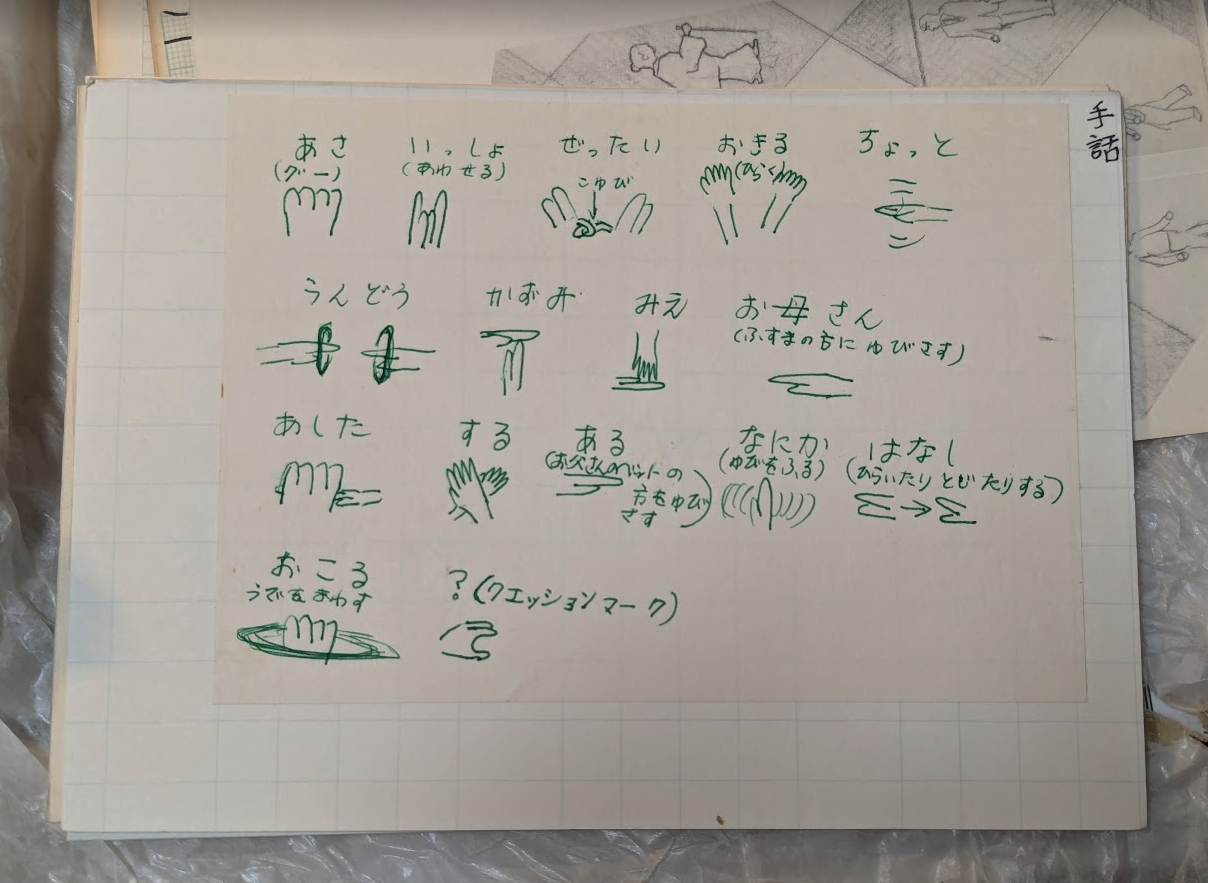 手話
あさ
(グー)
いっしょ
(あわせる)
ぜったい
こゆび
おきる
(ひらく)
ちょっと
うんどう
かずみ
みえ
お母さん
(ふすまの方にゆびさす)
あした
する
ある
(お父さんのベットの
方をゆび
さす)
なにか
(ゆびをふる)
はなし
(ひらいたりとじたりする)
おこる
うでをまわす
?(クエッションマーク)